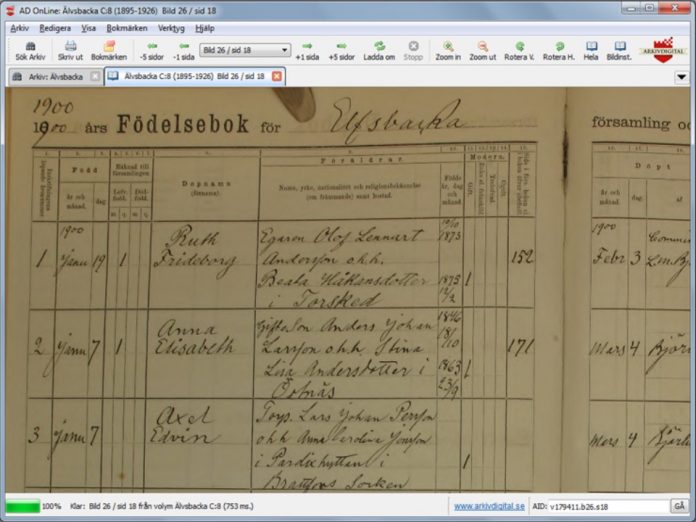 AD OnLine: Älvsbacka C:8 (1895-1926) Bild 26 / sid 18
Arkiv Redigera Visa Bokmärken Verktyg Hjälp
Bild 26 / sid 18
Sök Arkiv Skriv ut Bokmärken -5 sidor -1 sida +1 sida +5 sidor Ladda om Stopp Zoom in Zoom ut Rotera V. Rotera H. Hela Bildinst. ARKIVDIGITAL
Arkiv: Älvsbacka Älvsbacka C:8 (1895-1926) Bild 26 / sid 18
1900
1900 års Födelsebok för Elfsbacka församling oc
Född
Månad till församlingen
Föräldrar
Modern
Döpt
år och månad. dag.
Lefv. född. Död. född.
m. q. m. q.
Dopnamn
(förnamn).
Namn, yrke, nationalitet och religionsbekännelse
(om främmande) samt bostad.
Födelseår, dag och månad.
Gift.
Ogift
år och månad. dag.
1900
1 Janu 19 1 Ruth Frideborg
Egaren Olof Lennart
Andersson o.h.h.
Beata Håkansdotter
i Torsked
1873
1875
1
152
1900
Febr 3
2 Janu 7 1 Anna Elisabeth
Anders Johan
Larsson o.h.h. Stina
Lisa Andersdotter i
1846
18/10
1863
23/9
1
171
Mars 4
3 Janu 7 Axel Edvin
Torp. Lars Johan Persson
o.h.h. Anna Carolina Jonsson
i
Brattfors Socken
1
Mars 4
100% Klar: Bild 26 / sid 18 från volym Älvsbacka C:8 (753 ms.) www.arkivdigital.se AID: v179411.b26.s18 GÅ